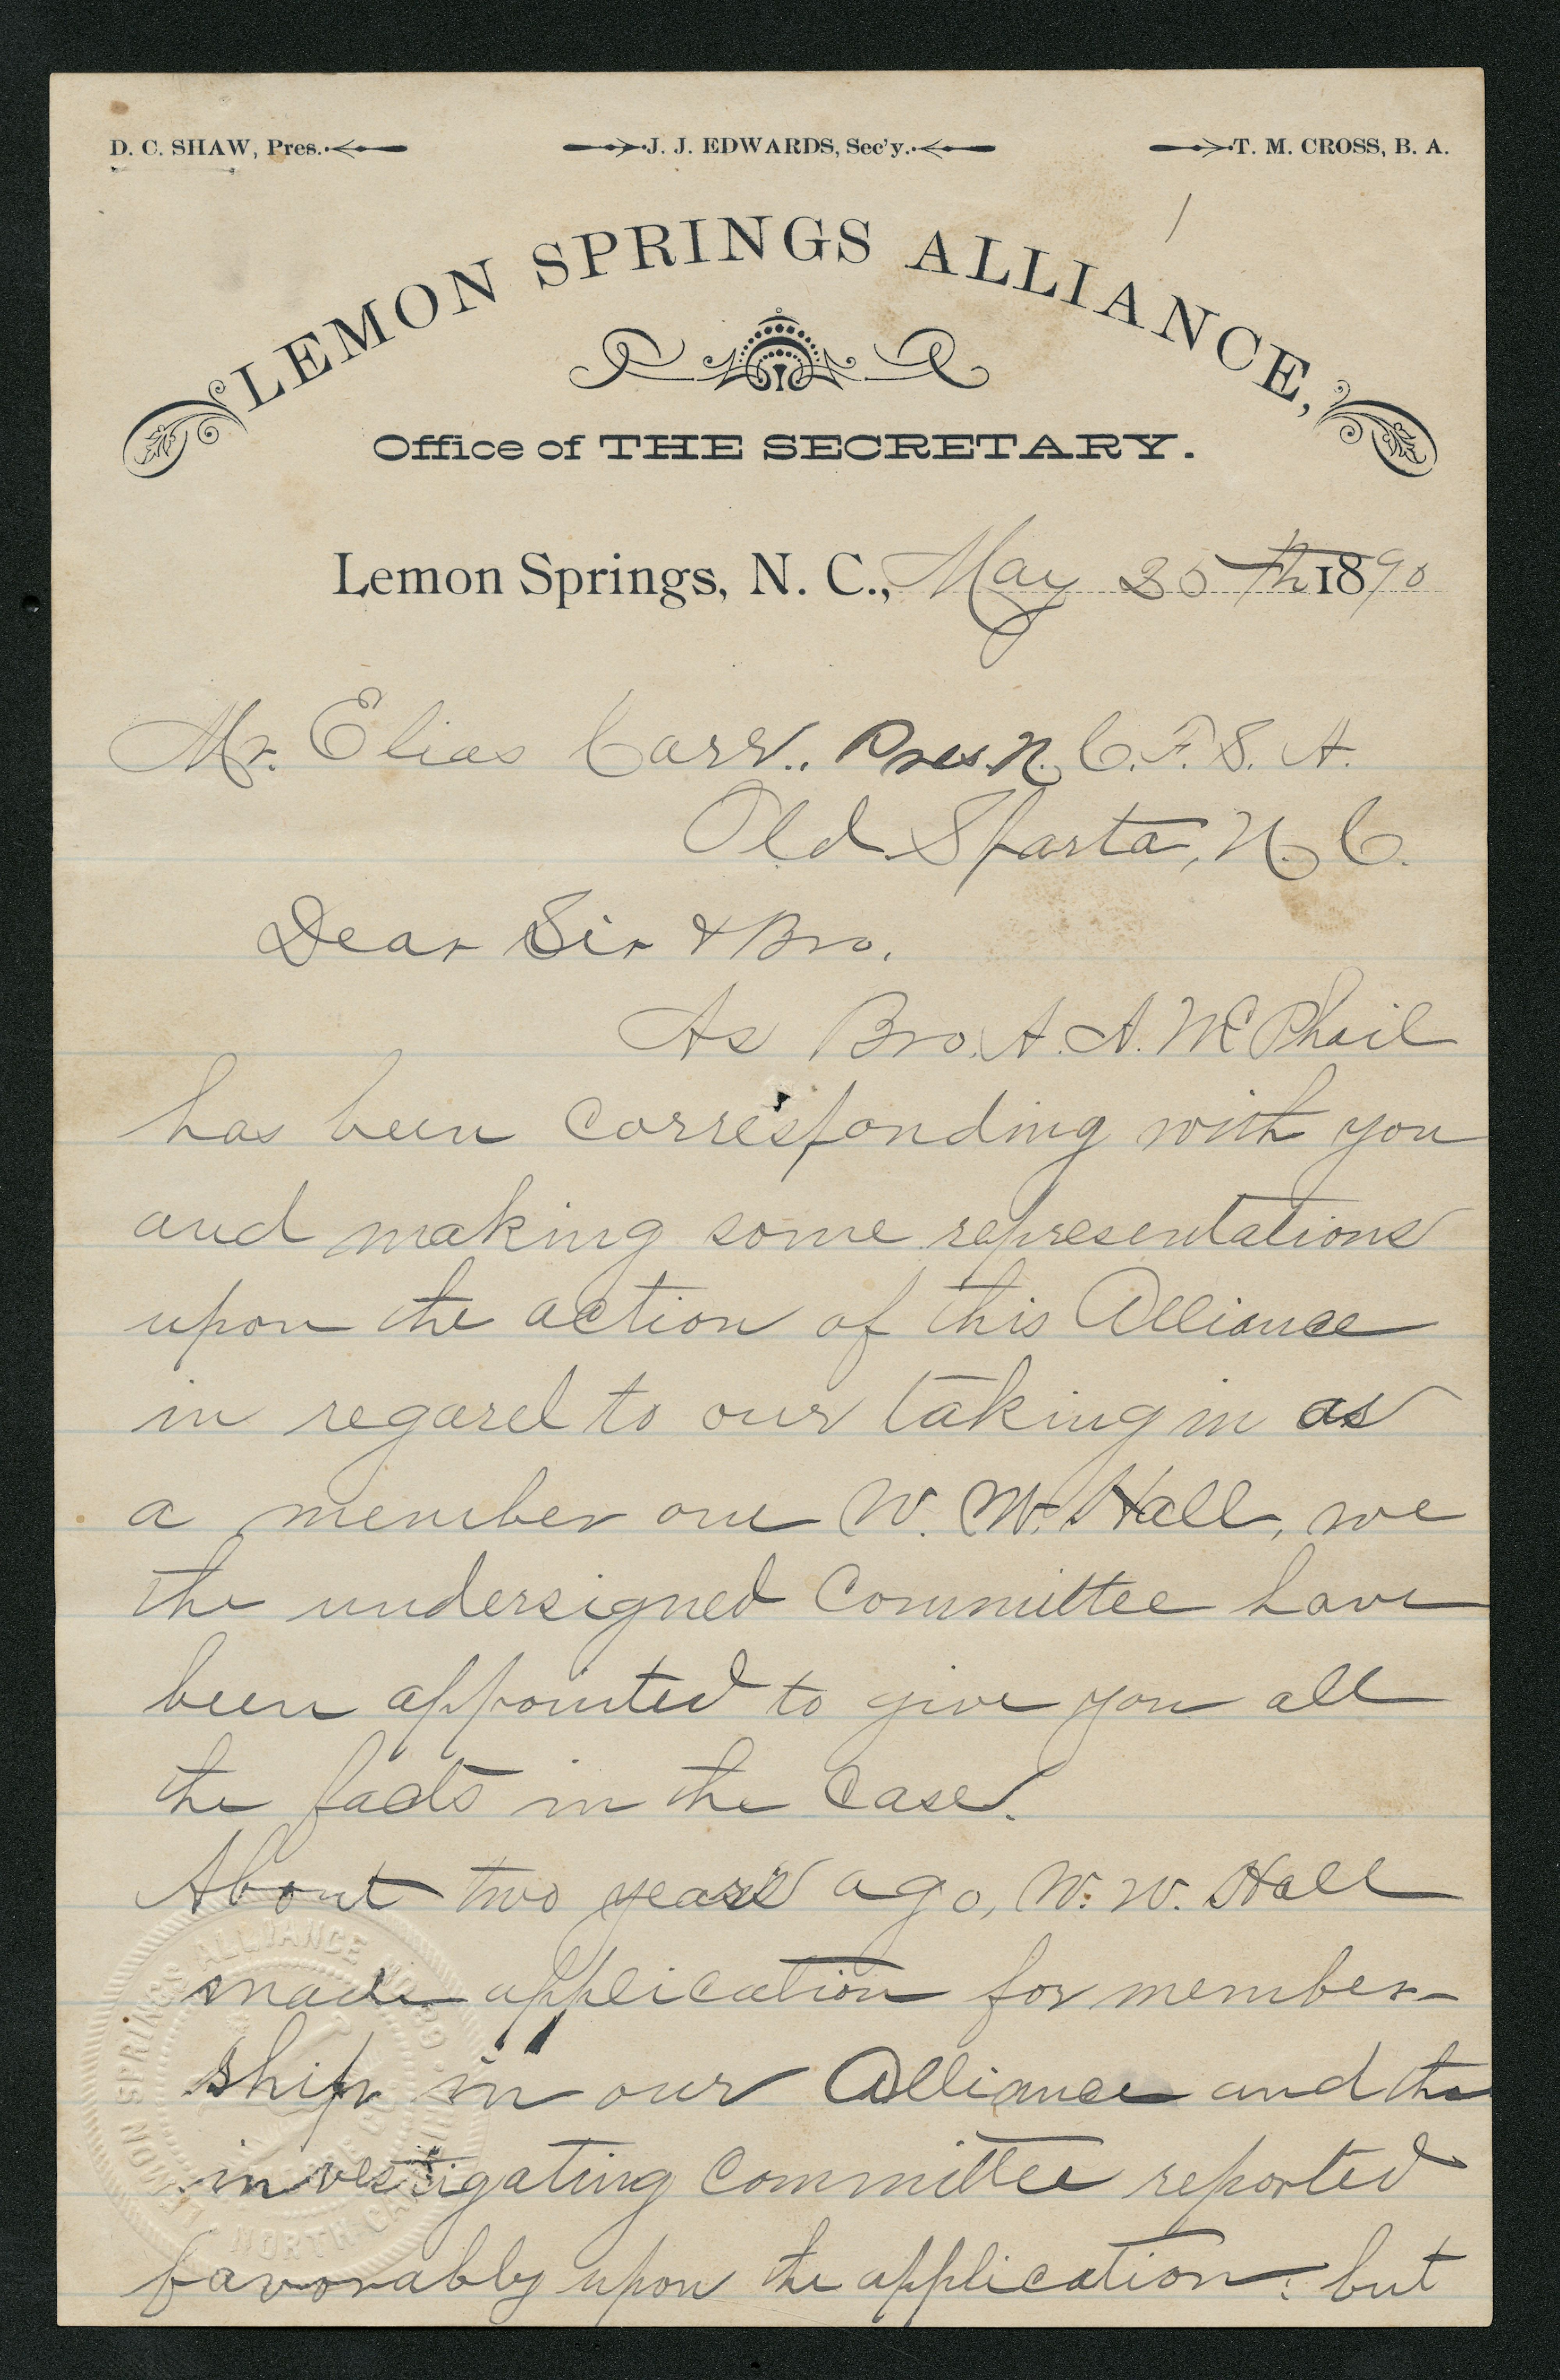 D. C. SHAW, Pres.
J. J. EDWARDS, Sec'y.
T. M. CROSS, B. A.
LEMON SPRINGS ALLIANCE,
Office of THE SECRETARY.
Lemon Springs, N. C., May 25th 1890
Mr. Elias Carr.. Pres. N. C. F. S. A.
Old Sparta, N. C.
Dear Sir & Bro.
As Bro. A. A. McPhail
has been corresponding with you
and making some representations
upon the action of this Alliance
in regard to our taking in as
a member one W. W. Hall, we
the undersigned Committee have
been appointed to give you all
the facts in the case.
About two years ago, W. W. Hall
made application for member-
ship in our Alliance and the
investigating committee reported
favorably upon the application: but
LEMON SPRINGS ALLIANCE NO.
NORTH CAROLINA